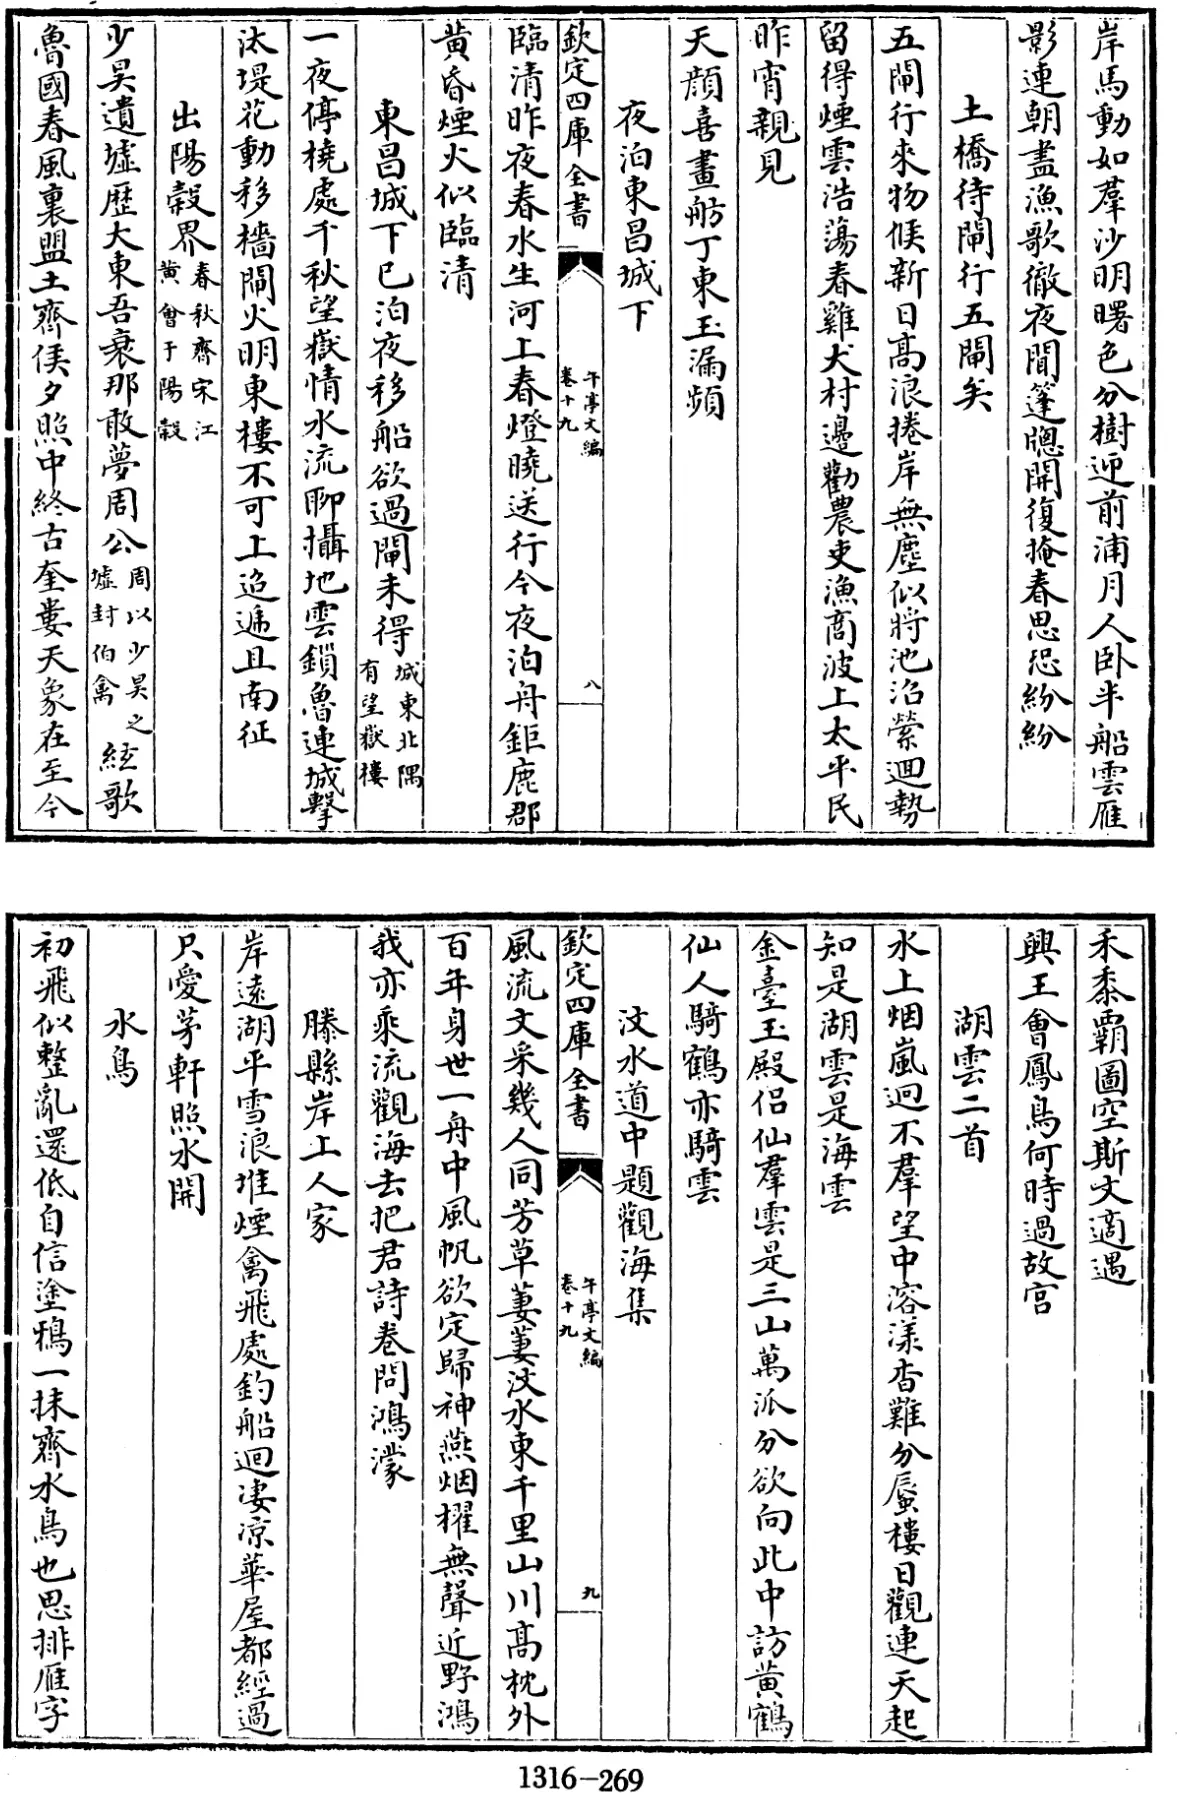 岸馬動如羣沙明曙色分樹迎前浦月人卧半船雲雁
影連朝盡漁歌徹夜聞篷牕開復掩春思恐紛紛
土橋待閘行五閘矣
五閘行來物候新日髙浪捲岸無塵似將池沼縈迴勢
留得煙雲浩蕩春雞犬村邊勸農吏漁商波上太平民
昨宵親見
天顔喜畫舫丁東玉漏頻
夜泊東昌城下
臨清昨夜春水生河上春燈曉送行今夜泊舟鉅鹿郡
黄昏煙火似臨清
東昌城下已泊夜移船欲過閘未得城東北隅有望嶽樓
一夜停橈處千秋望嶽情水流聊攝地雲鎖魯連城擊
汰堤花動移檣閘火明東樓不可上迢遞且南征
出陽穀界春秋齊宋江黄會于陽穀
少昊遺墟歴大東吾衰那敢夢周公周以少昊之墟封伯禽絃歌
魯國春風裏盟土齊侯夕照中終古奎婁天象在至今
欽定四庫全書
午亭文編
卷十九
八
禾黍霸圖空斯文適遇
興王會鳳鳥何時過故宫
湖雲二首
水上烟嵐迥不羣望中溶漾杳難分蜃樓日觀連天起
知是湖雲是海雲
金臺玉殿侣仙羣雲是三山萬派分欲向此中訪黄鶴
仙人騎鶴亦騎雲
汶水道中題觀海集
風流文采幾人同芳草萋萋汶水東千里山川髙枕外
百年身世一舟中風帆欲定歸神燕烟櫂無聲近野鴻
我亦乘流觀海去把君詩卷問鴻濛
滕縣岸上人家
岸遠湖平雪浪堆煙禽飛處釣船迴淒凉華屋都經過
只愛茅軒照水開
水鳥
初飛似整亂還低自信塗鴉一抹齊水鳥也思排雁字
欽定四庫全書
午亭文編
卷十九
九
1316-269